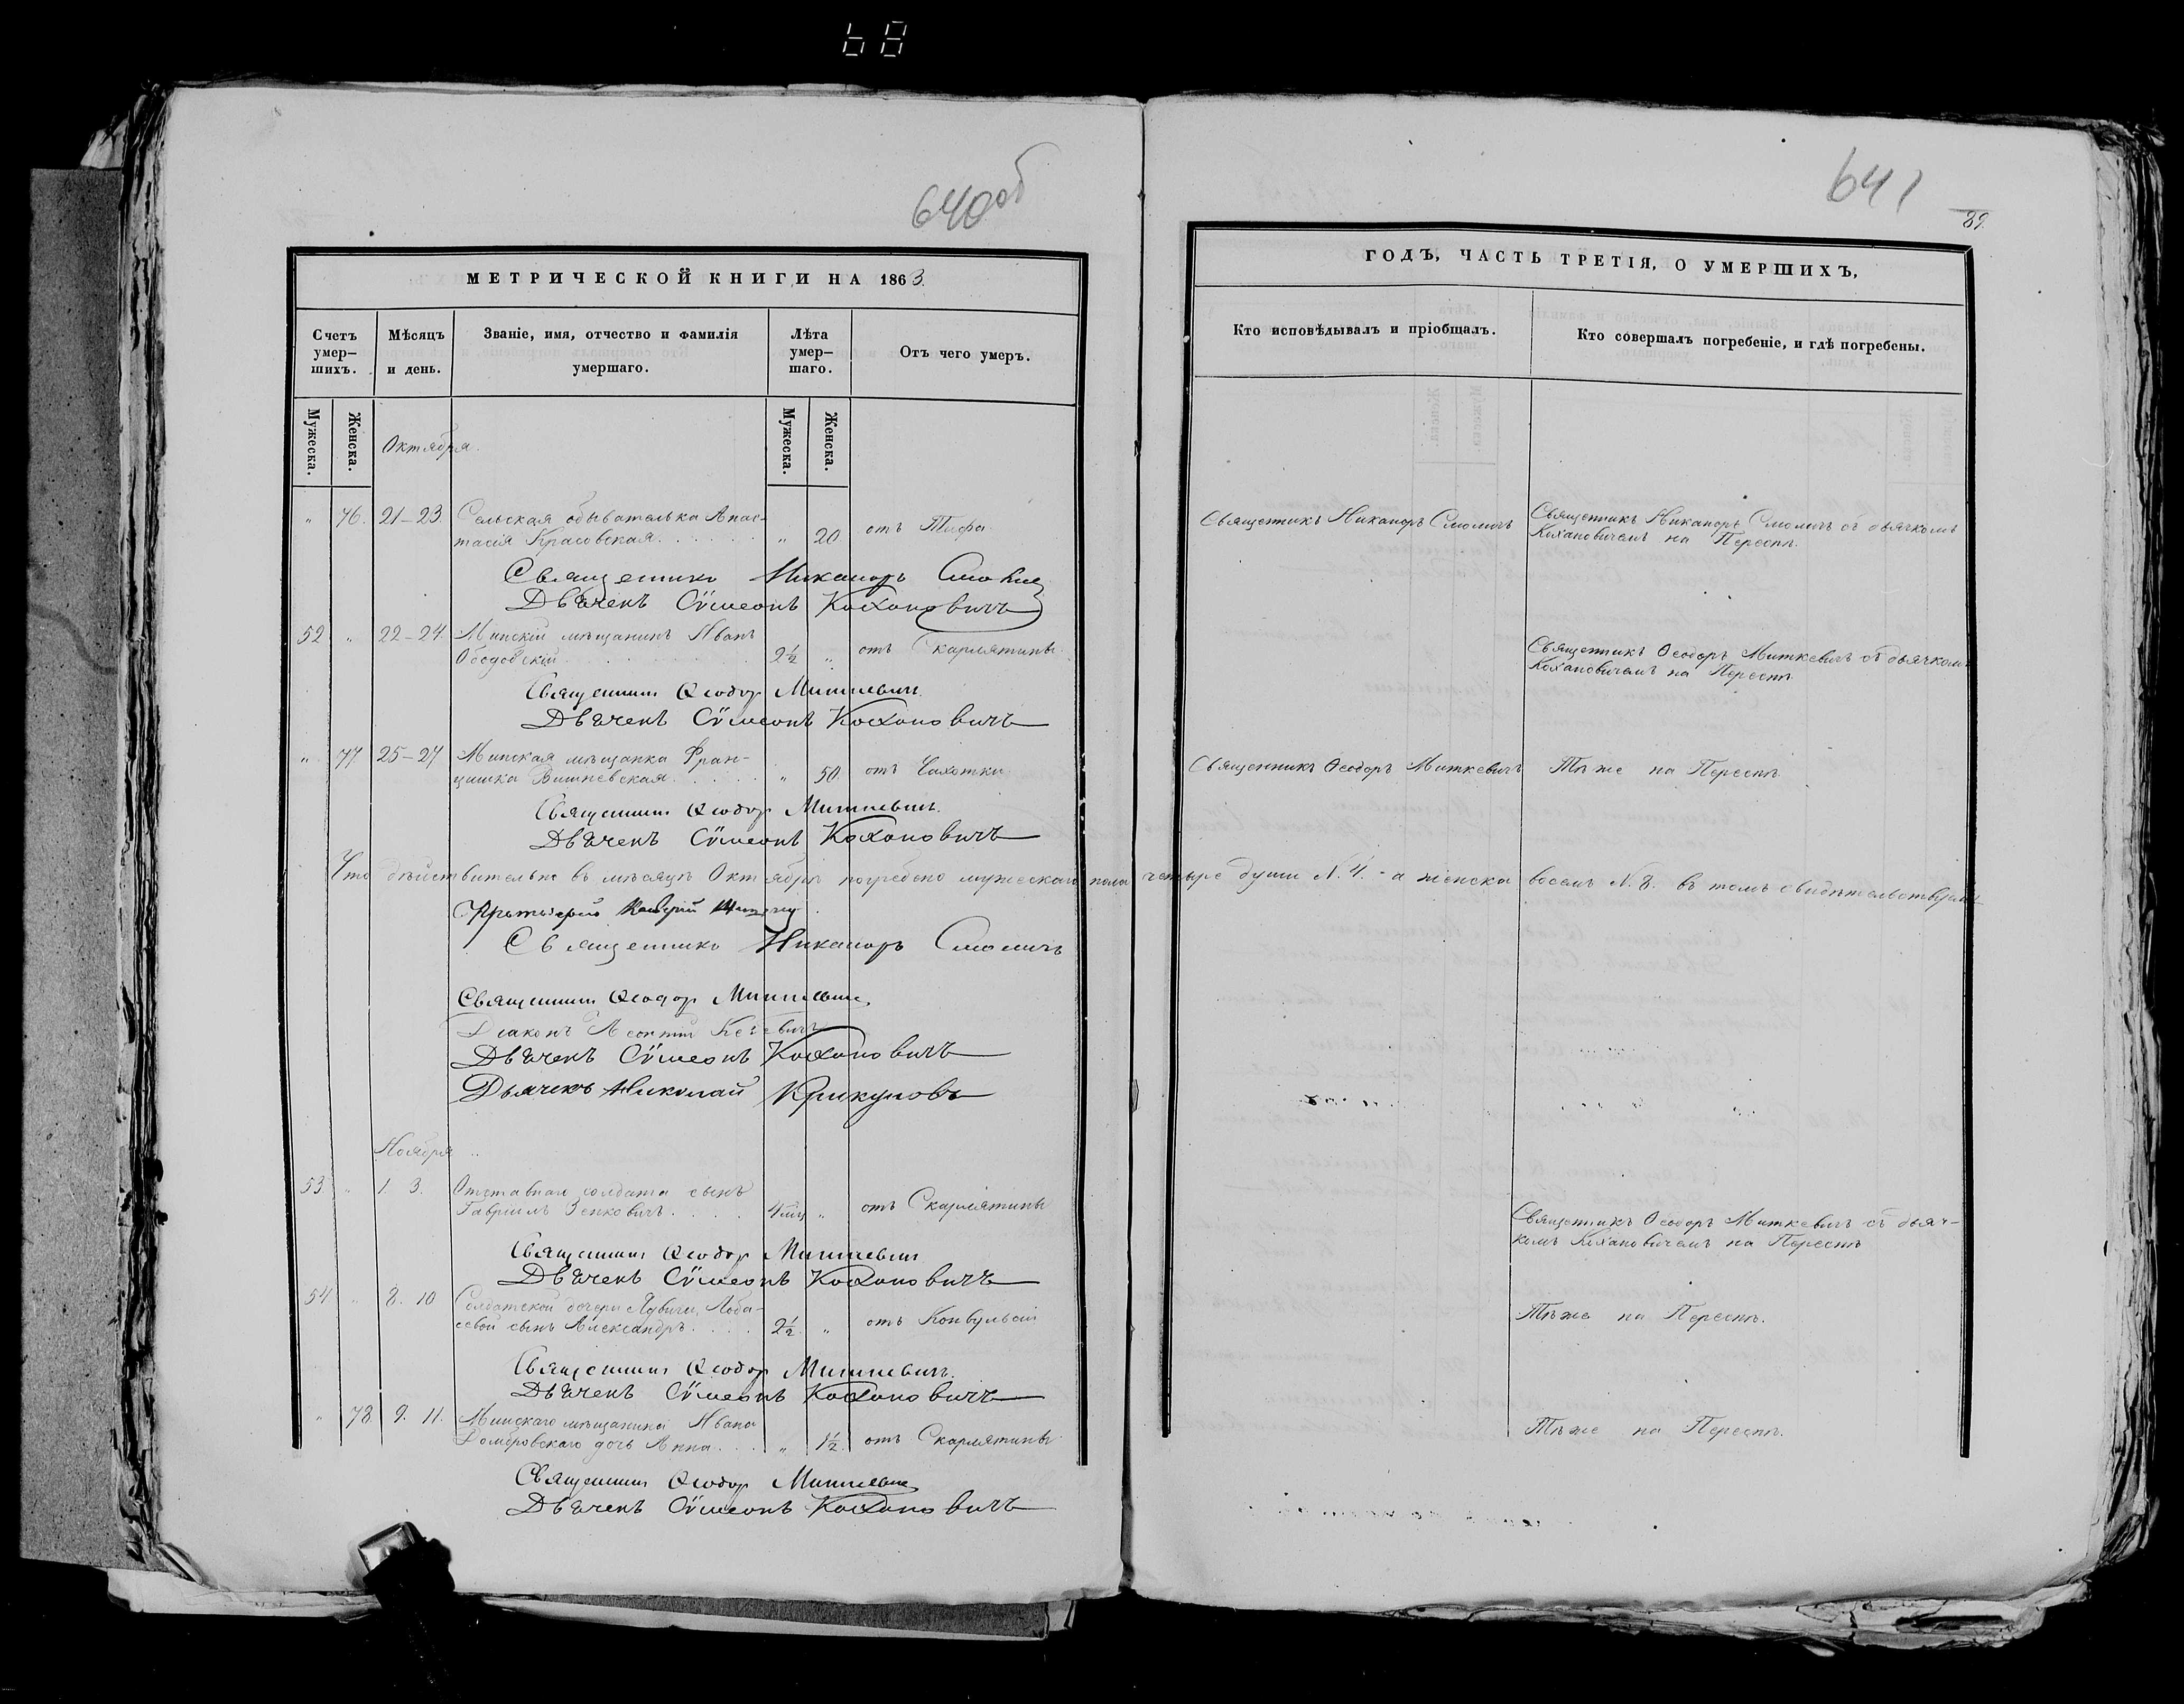 68
640об
641
89.
МЕТРИЧЕСКОЙ КНИГИ НА 1863.
ГОДЪ, ЧАСТЬ ТРЕТІЯ, О УМЕРШИХЪ,
Счетъ умер-шихъ.
Мѣсяцъ и день.
Званіе, имя, отчество и фамилія умершаго.
Лѣта умер-шаго.
Отъ чего умеръ.
Кто исповѣдывалъ и пріобщалъ.
Кто совершалъ погребеніе, и гдѣ погребены.
Мужеска.
Женска.
Мужеска.
Женска.
Октября.
" 76. 21–23. Сельская обывателька Анас-
тасія Красовская. " 20. отъ Тифа
Священникъ Никаноръ Смоличъ
Священникъ Никаноръ Смоличъ съ дьячкомъ
Кохановичемъ на Переспѣ.
Священникъ Никаноръ Смоличъ
Дьячекъ Сѵмеонъ Кохановичъ
52 " 22–24. Минскій мѣщанинъ Иванъ
2½ " отъ Скарлятины
Священникъ Ѳеодоръ Миткевичъ съ дьячкомъ
Кохановичемъ на Переспѣ
Священникъ Ѳеодоръ Миткевичъ
Дьячекъ Сѵмеонъ Кохановичъ
" 77 25–27 Минская мѣщанка Фран-
цишка Вишневская. " 50. отъ Чахотки
Священникъ Ѳеодоръ Миткевичъ
Тѣ же на Переспѣ
Священникъ Ѳеодоръ Миткевичъ
Дьячекъ Сѵмеонъ Кохановичъ
Что дѣйствительно въ мѣсяцѣ Октябрѣ погребено мужескаго пола четыре души N. 4. - а женска восемь N. 8. въ томъ свидѣтельствуемъ
Протоіерей
Священникъ Никаноръ Смоличъ
Священникъ Ѳеодоръ Миткевичъ
Діаконъ Леонтій
Дьячекъ Сѵмеонъ Кохановичъ
Дьячекъ Николай Крикуновъ
Ноября
53. " 1. 3. Отставнаго солдата сынъ
Гавріилъ Зенковичъ. 4 мѣц " отъ Скарлятины
Священникъ Ѳеодоръ Миткевичъ съ дьяч-
комъ Кохановичемъ на Переспѣ
Священникъ Ѳеодоръ Миткевичъ
Дьячекъ Сѵмеонъ Кохановичъ
54 " 8. 10 Солдатской дочери
сынъ Александръ. 2½ " отъ Конвульсій
Тѣ же на Переспѣ.
Священникъ Ѳеодоръ Миткевичъ
Дьячекъ Сѵмеонъ Кохановичъ
" 78. 9. 11. Минскаго мѣщанина Ивана
Домбровскаго дочь Анна. " 1½ отъ Скарлятины
Тѣ же на Переспѣ.
Священникъ Ѳеодоръ Миткевичъ
Дьячекъ Сѵмеонъ Кохановичъ